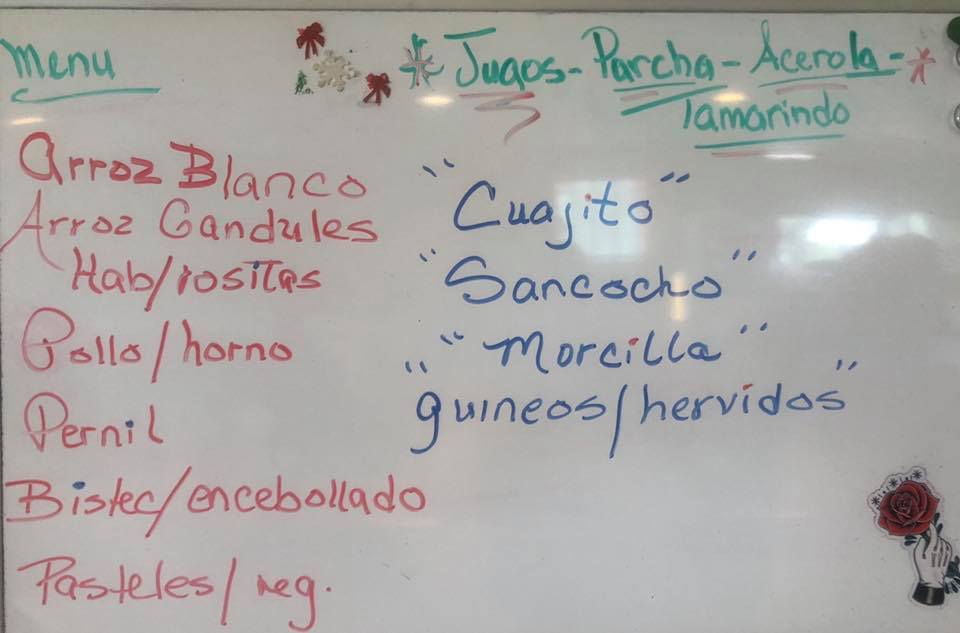 Menu
* Jugos - Parcha - Acerola - *
Tamarindo
Arroz Blanco
Arroz Gandules
Hab/rositas
Pollo/horno
Pernil
Bistec/encebollado
Pasteles/reg.
"Cuajito"
"Sancocho"
"Morcilla"
"guineos/hervidos"